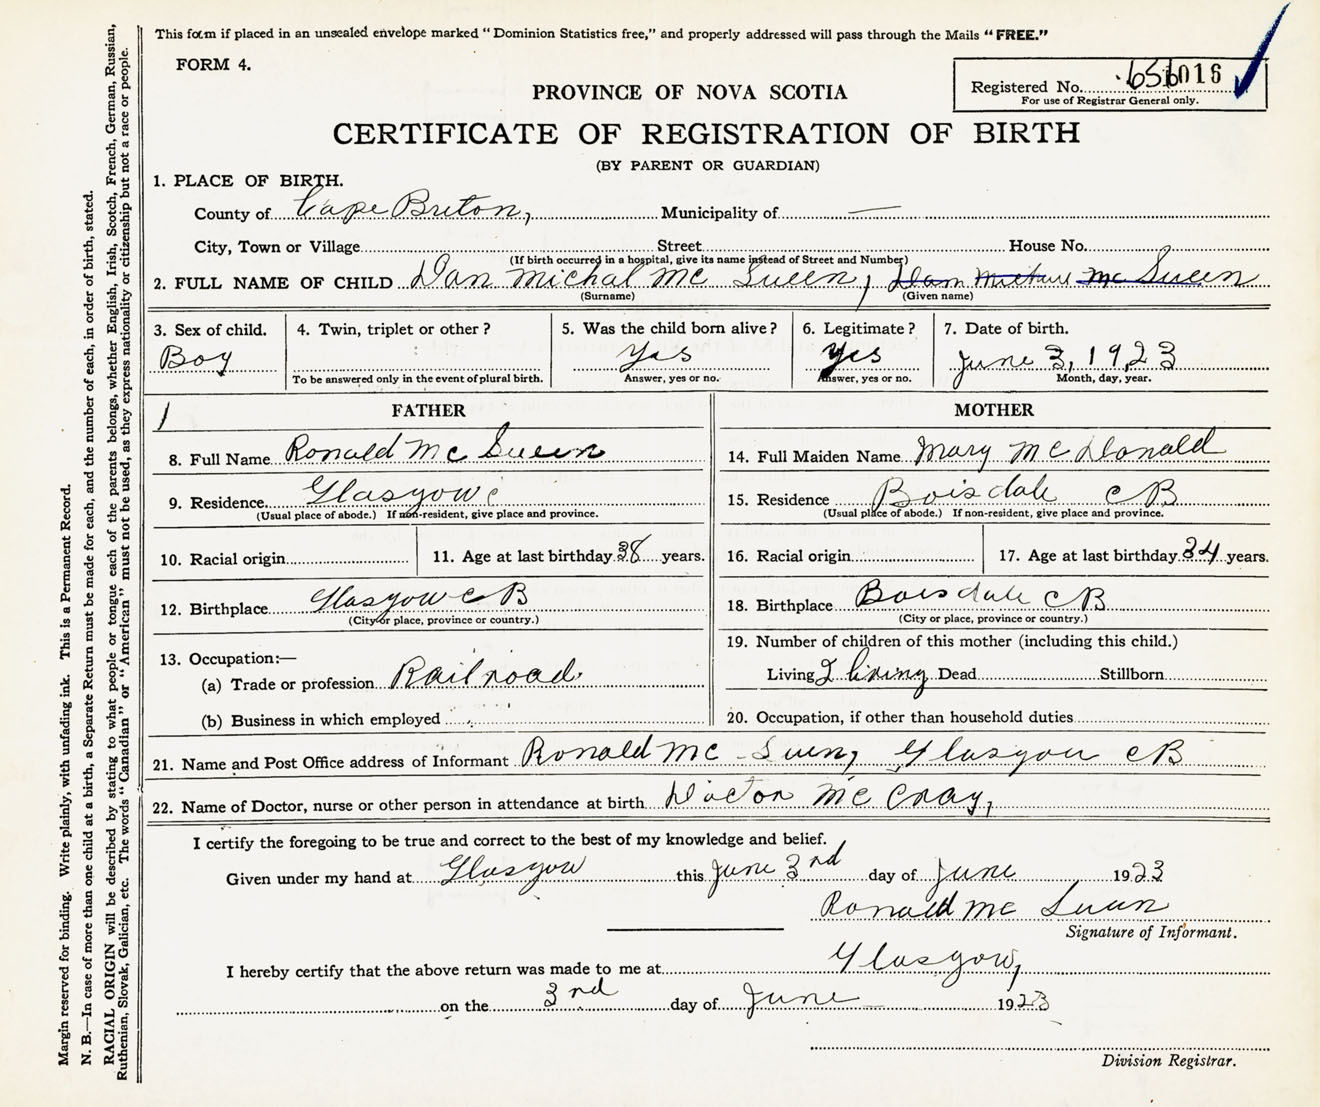 This form if placed in an unsealed envelope marked "Dominion Statistics free," and properly addressed will pass through the Mails "FREE."
FORM 4.
Registered No. 016
For use of Registrar General only.
PROVINCE OF NOVA SCOTIA
CERTIFICATE OF REGISTRATION OF BIRTH
(BY PARENT OR GUARDIAN)
1. PLACE OF BIRTH.
County of Cape Breton, Municipality of —
City, Town or Village Street House No.
(If birth occurred in a hospital, give its name instead of Street and Number)
2. FULL NAME OF CHILD Dan Michal Mc Sueen, Dan Michael Mc Sueen
(Surname) (Given name)
3. Sex of child. 4. Twin, triplet or other? 5. Was the child born alive? 6. Legitimate? 7. Date of birth.
Boy Yas Yes June 3, 1923
To be answered only in the event of plural birth. Answer, yes or no. Answer, yes or no. Month, day, year.
FATHER MOTHER
8. Full Name Ronald Mc Sueen 14. Full Maiden Name Mary Mc Donald
9. Residence Glasgow 15. Residence Boisdale CB
(Usual place of abode.) If non-resident, give place and province. (Usual place of abode.) If non-resident, give place and province.
10. Racial origin 11. Age at last birthday 38 years. 16. Racial origin 17. Age at last birthday 34 years.
12. Birthplace Glasgow CB 18. Birthplace Boisdale CB
(City or place, province or country.) (City or place, province or country.)
13. Occupation:— 19. Number of children of this mother (including this child.)
(a) Trade or profession Railroad Living 2 living Dead Stillborn
(b) Business in which employed 20. Occupation, if other than household duties
21. Name and Post Office address of Informant Ronald Mc Suen, Glasgow CB
22. Name of Doctor, nurse or other person in attendance at birth Doctor Mc Cray,
I certify the foregoing to be true and correct to the best of my knowledge and belief.
Given under my hand at Glasgow this June 3rd day of June 1923
Ronald Mc Sueen
Signature of Informant.
I hereby certify that the above return was made to me at Glasgow,
on the 3rd day of June 1923
Division Registrar.
Margin reserved for binding. Write plainly, with unfading ink. This is a Permanent Record.
N. B.—In case of more than one child at a birth, a Separate Return must be made for each, and the number of each, in order of birth, stated.
RACIAL ORIGIN will be described by stating to what people or tongue each of the parents belongs, whether English, Irish, Scotch, French, German, Russian,
Ruthenian, Slovak, Galician, etc. The words "Canadian" or "American" must not be used, as they express nationality or citizenship but not a race or people.